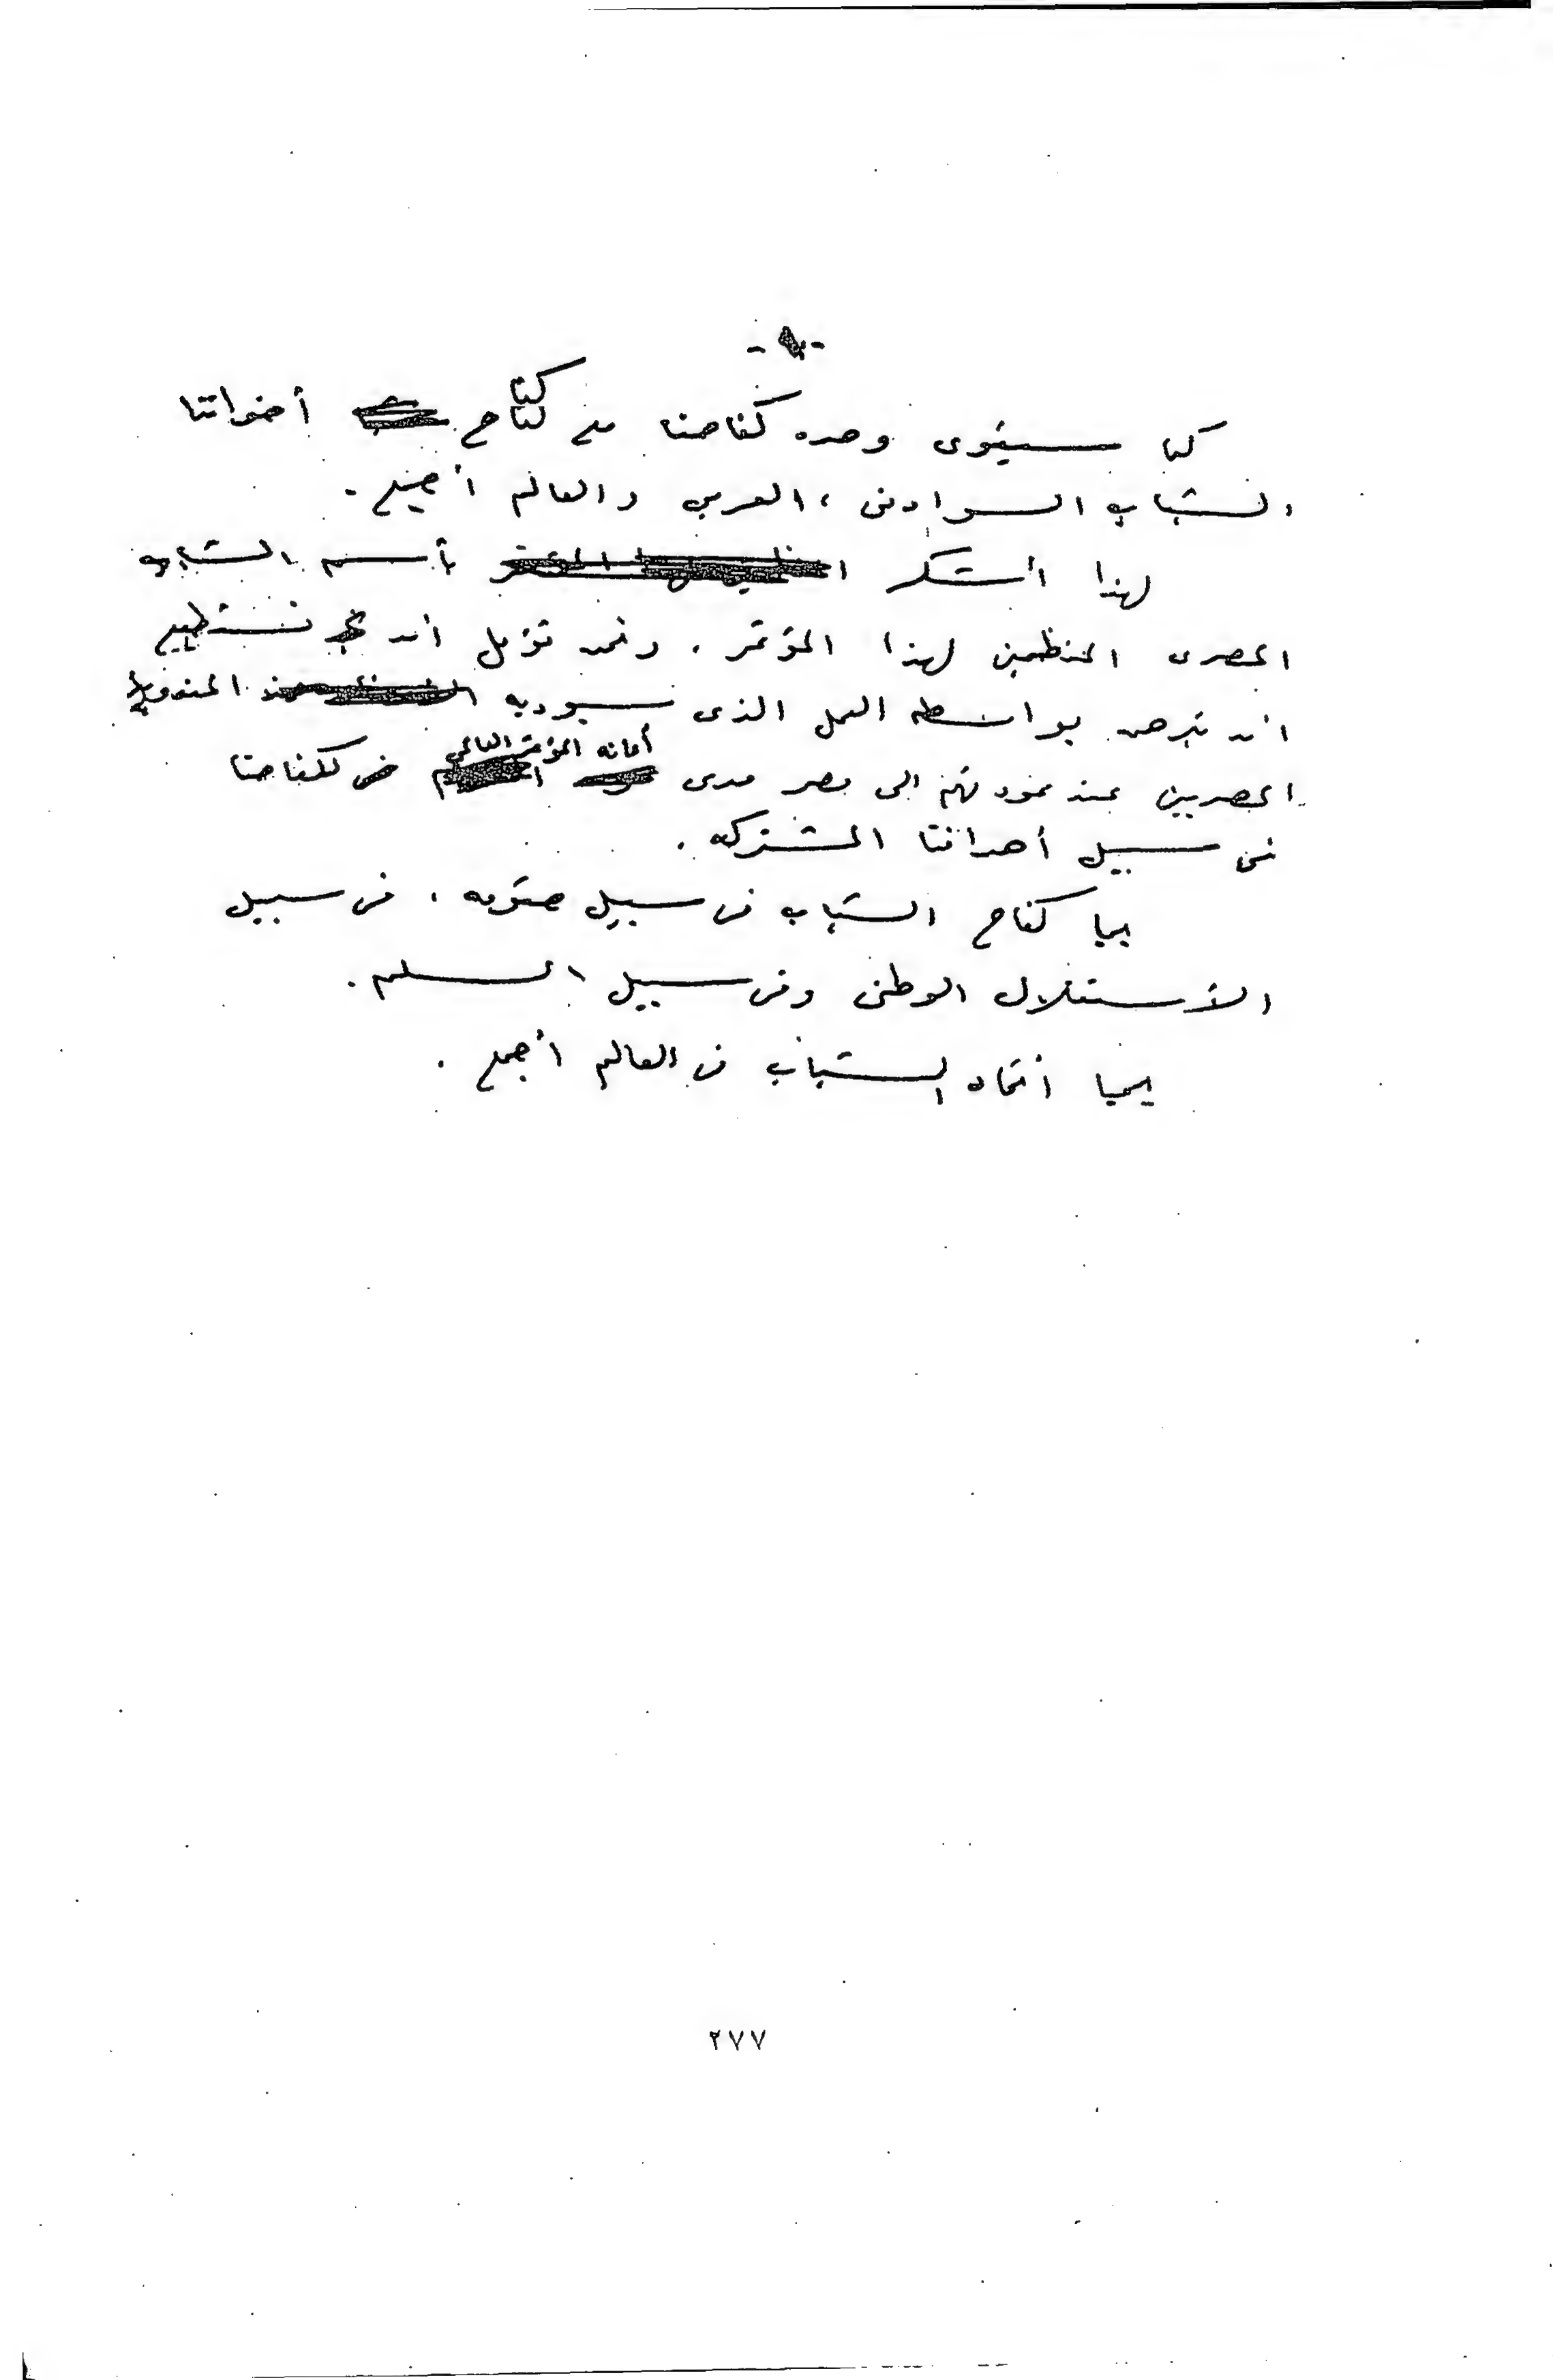 كما سيقوى وحده كفاحنا مع كفاح أخواتنا
الشباب السودانى ، العربى والعالم أجمع .
لهذا أشكر بأسم الشباب
المصرى المنظمين لهذا المؤتمر . ونحن نؤمل أن نستطيع
أن نبرهن بواسطه العمل الذى سيؤديه المندوبين
المصريين عند عودتهم الى مصر مدى
أمانه المؤتمر العالمى
لكفاحنا
فى سبيل أهدافنا المشتركه .
يحيا كفاح الشباب فى سبيل حقوقه ، فى سبيل
الأستقلال الوطنى وفى سبيل السلم .
يحيا أتحاد الشباب فى العالم أجمع .
٢٧٧